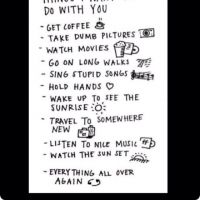 DO WITH YOU
- GET COFFEE
- TAKE DUMB PICTURES
- WATCH MOVIES
- GO ON LONG WALKS
- SING STUPID SONGS
- HOLD HANDS ♡
- WAKE UP TO SEE THE
SUNRISE
- TRAVEL TO SOMEWHERE
NEW
- LISTEN TO NICE MUSIC
- WATCH THE SUN SET
- EVERYTHING ALL OVER
AGAIN